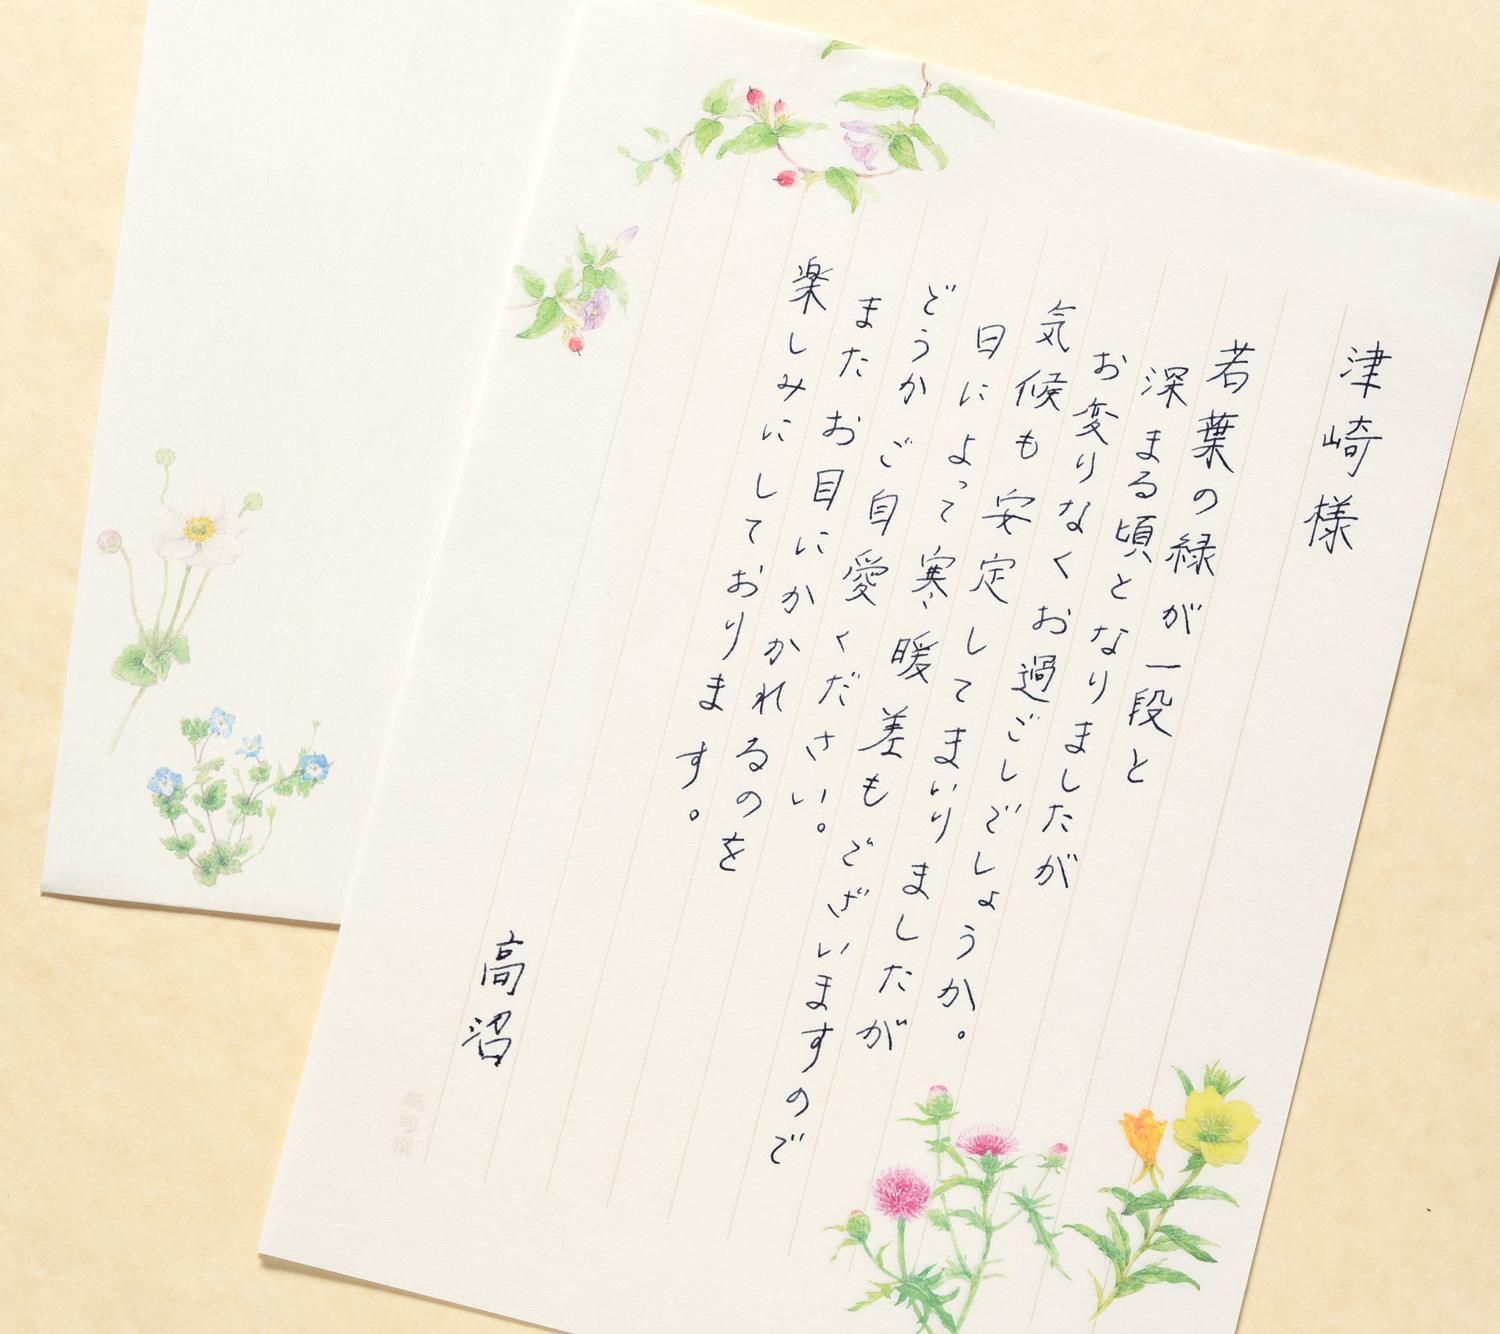 津崎様
若葉の緑が一段と
深まる頃となりましたが
お変りなくお過ごしでしょうか。
気候も安定してまいりましたが
日によって寒暖差もございますので
どうかご自愛ください。
またお目にかかれるのを
楽しみにしております。
高沼